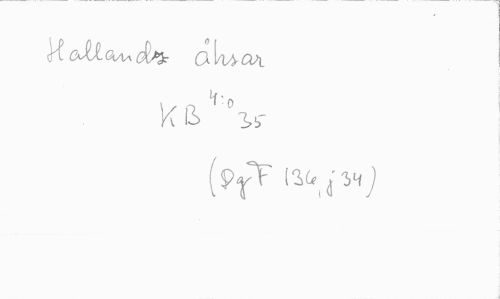 Hallands åksar
KB 4:o 35
(DgF 136, j 34)